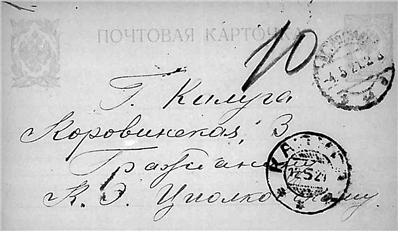 ПОЧТОВАЯ КАРТОЧКА
10
4.5.21
Г. Калуга
Коровинская, 3
Гражданину
К. Э. Циолковскому
КАЛУГА
12.5.21